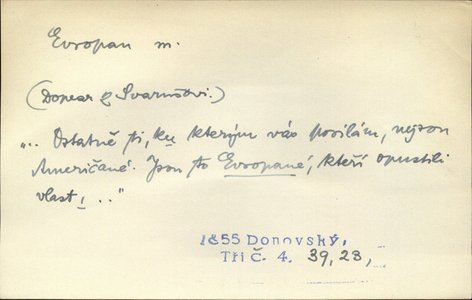 Evropan m.
(Dopisar z Svarnstovi.)
„.. Ostatně ti, ku kterým vás posílám, nejson
Američané. Json to Evropané, kteří opustili
vlast, ..."
1855 Donovský,
Tři č. 4. 39, 23,